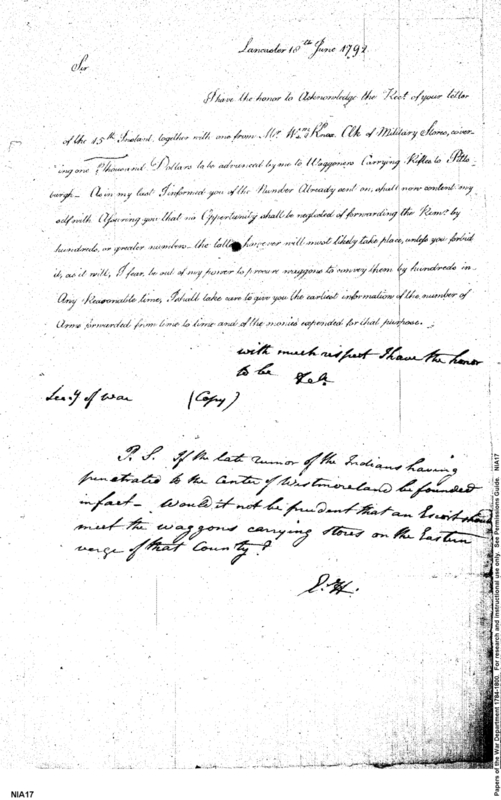 Lancaster 18th June 1792
Sir
I have the honor to Acknowledge the Rect. of your letter
of the 15th Instant, together with one from Mr. Wm. Knox Clk of Military Stores, cover-
ing one Thousand Dollars to be advanced by me to Waggoners Carrying Rifles to Pitts-
burgh - As in my last I informed you of the Number Already sent on, shall now content my
self with Assuring you that no Oppertunity shall be neglected of forwarding the Remr. by
hundreds, or greater numbers - the latter however will most likely take place, unless you forbid
it, as it will, I fear, be out of my power to procure waggons to convey them by hundreds in
Any Reasonable time, I shall take care to give you the earliest information of the number of
Arms forwarded from time to time and of the monies expended for that purpose.
with much respect I have the honor
to be &ca.
Secy. of War (Copy)
P.S. If the late rumor of the Indians having
penetrated to the Center of Westmoreland be founded
in fact - Would it not be prudent that an Escort should
meet the waggons carrying stores on the Eastern
verge of that County?
E.H.
NIA17
Papers of the War Department 1784-1800. For research and instructional use only. See Permissions Guide. NIA17